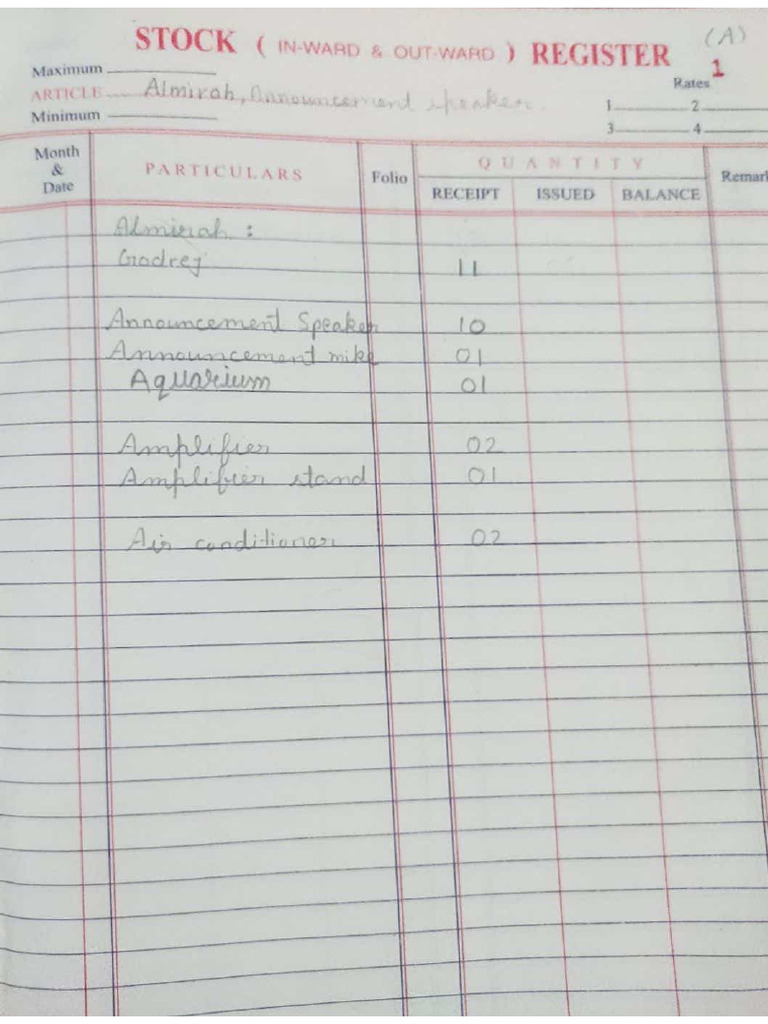 (A)
STOCK ( IN-WARD & OUT-WARD ) REGISTER 1
Maximum
Rates
ARTICLE Almirah, Announcement speaker.
1 2
Minimum
3 4
Month & Date PARTICULARS Folio QUANTITY Remark
RECEIPT ISSUED BALANCE
Almirah :
Godrej 11
Announcement Speaker 10
Announcement mike 01
Aquarium 01
Amplifier 02
Amplifier stand 01
Air conditioner 02